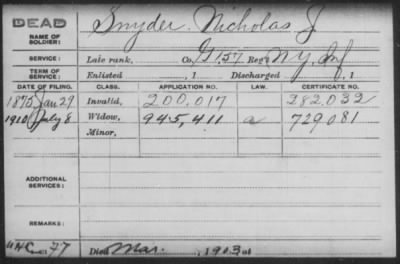 DEAD
NAME OF SOLDIER: Snyder, Nicholas J
SERVICE: Late rank, Co. G 157 Reg't N.Y. Inf
TERM OF SERVICE: Enlisted , 1 Discharged , 1
DATE OF FILING. CLASS. APPLICATION NO. LAW. CERTIFICATE NO.
1875 Jan 29 Invalid, 200,017 282,032
1910 July 8 Widow, 945,411 a 729081
Minor,
ADDITIONAL SERVICES:
REMARKS:
77 Died Mar. , 1903, at